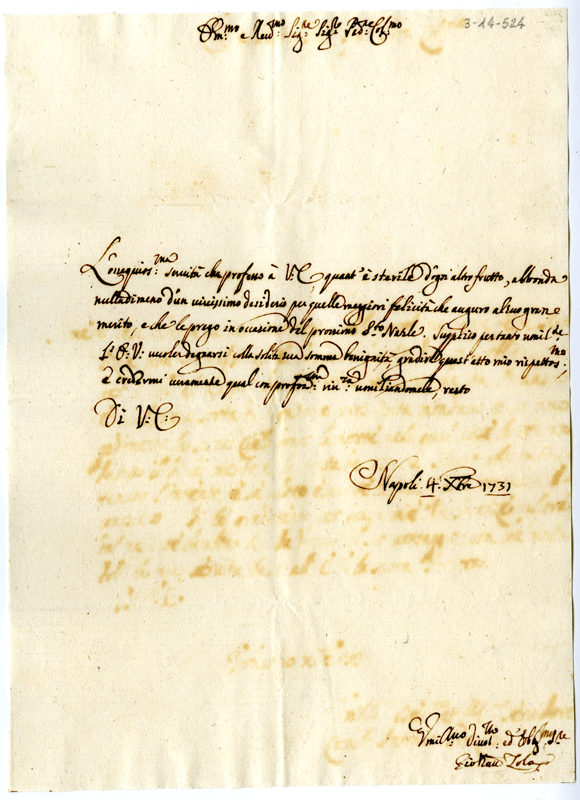 3-14-524
Em:mo e Rev:mo Sig:re Sig:re Pad:ne Col:mo
L'ossequios:ma servitù che professo à V: E: quant' è sterile d'ogni altro frutto, abbonda
nulladimeno d'un vivissimo desiderio per quelle maggiori felicità che auguro al suo gran
merito, e che le prego in occasione del prossimo S:to Nat.le. Supplico pertanto umil:te
l' E: V: voler degnarsi colla solita sua somma benignità, gradire quest' atto mio rispettos:mo,
e credermi veramente qual con profon: riv:za umiliandomele, resto
Di V: E:
Napoli 4. Xbre 1731
Umil:mo Divot:mo ed Obl: